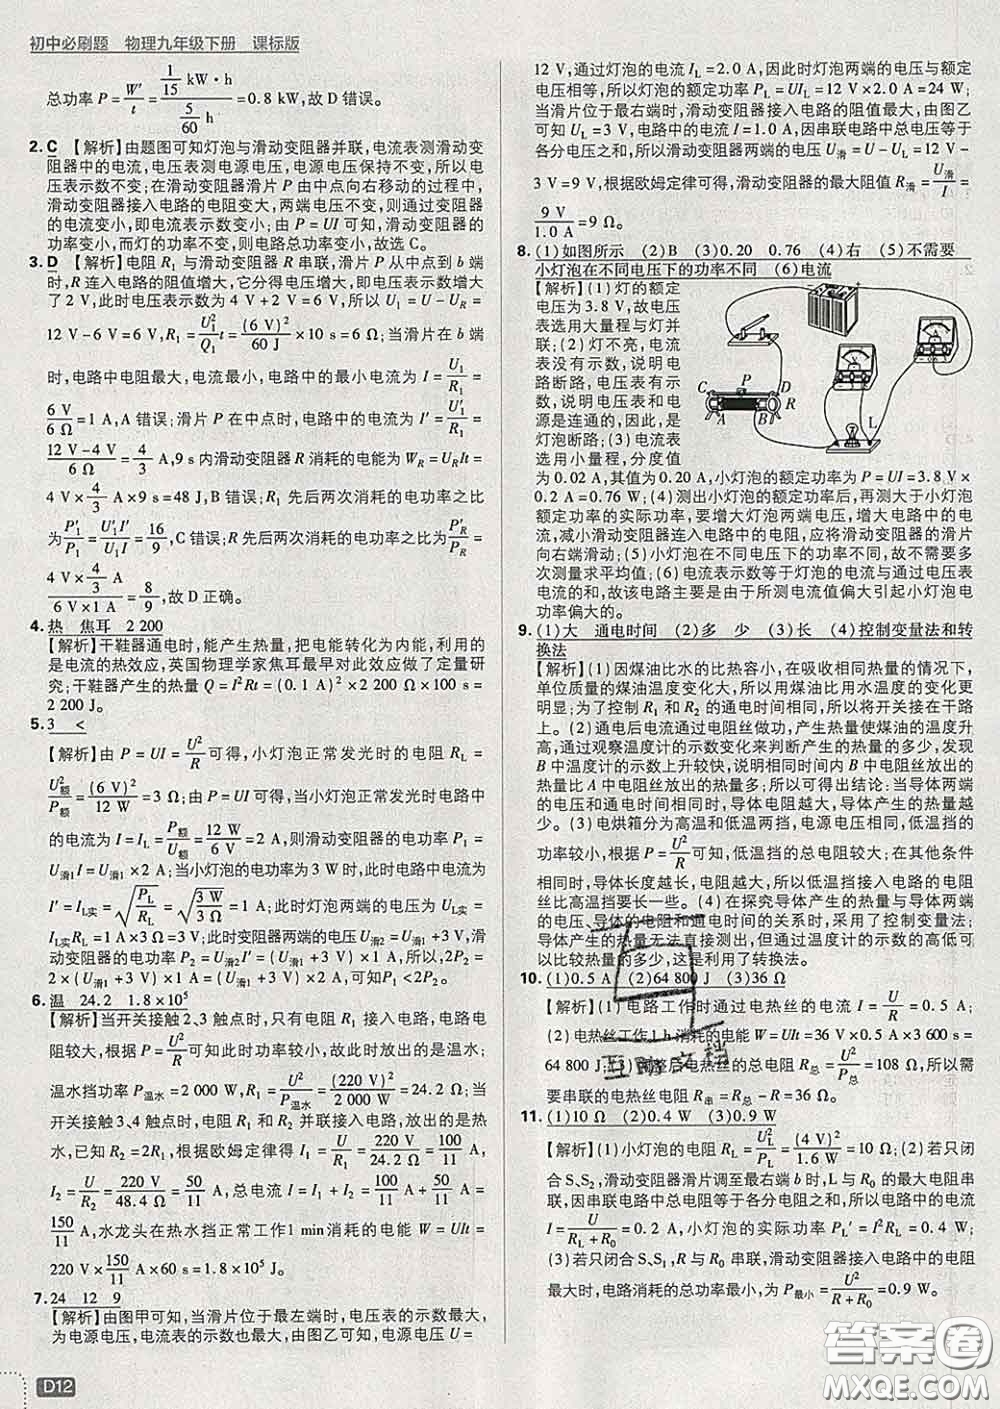 初中必刷题　物理九年级下册　课标版
总功率 P = W′/t = (1/15 kW·h)/(5/60 h) = 0.8 kW,故 D 错误。
2. C 【解析】由题图可知灯泡与滑动变阻器并联,电流表测滑动变
阻器中的电流,电压表测电源电压,电源电压保持不变,所以电
压表示数不变;在滑动变阻器滑片 P 由中点向右移动的过程中,
滑动变阻器接入电路的电阻变大,两端电压不变,则通过变阻器
的电流变小,即电流表示数变小;由 P = UI 可知,滑动变阻器的
功率变小,而灯的功率不变,则电路总功率变小,故选 C。
3. D 【解析】电阻 R₁ 与滑动变阻器 R 串联,滑片 P 从中点到 b 端
时,R 连入电路的阻值增大,它分得电压增大,即电压表示数增大
了 2 V,此时电压表示数为 4 V + 2 V = 6 V,所以 U₁ = U − U_R =
12 V − 6 V = 6 V,R₁ = U₁²/Q₁ t = (6 V)²/60 J × 10 s = 6 Ω;当滑片在 b 端
时,电路中电阻最大,电流最小,电路中的最小电流为 I = U₁/R₁ =
6 V/6 Ω = 1 A,A 错误;滑片 P 在中点时,电路中的电流为 I′ = U₁′/R₁ =
(12 V − 4 V)/6 Ω = 4/3 A,9 s 内滑动变阻器 R 消耗的电能为 W_R = U_R It =
4 V × 4/3 A × 9 s = 48 J,B 错误;R₁ 先后两次消耗的电功率之比
为 P₁′/P₁ = U₁′I′/U₁I = 16/9,C 错误;R 先后两次消耗的电功率之比 P_R′/P_R =
(4 V × 4/3 A)/(6 V × 1 A) = 8/9,故 D 正确。
4. 热　焦耳　2 200
【解析】干鞋器通电时,能产生热量,把电能转化为内能,利用的
是电流的热效应,英国物理学家焦耳最早对此效应做了定量研
究;干鞋器产生的热量 Q = I²Rt = (0.1 A)² × 2 200 Ω × 100 s =
2 200 J。
5. 3　<
【解析】由 P = UI = U²/R 可得,小灯泡正常发光时的电阻 R_L =
U额²/P额 = (6 V)²/12 W = 3 Ω;由 P = UI 可得,当小灯泡正常发光时电路中
的电流为 I = I_L = P额/U额 = 12 W/6 V = 2 A,则滑动变阻器的电功率 P₁ =
U滑1 I = U滑1 × 2 A;当小灯泡的功率为 3 W 时,此时电路中电流为
I′ = I_L实 = √(P_L/R_L) = √(3 W/3 Ω) = 1 A;此时灯泡两端的电压为 U_L实 =
I_L实 R_L = 1 A × 3 Ω = 3 V;此时变阻器两端的电压 U滑2 = U滑1 + 3 V,滑
动变阻器的电功率 P₂ = U滑2 I′ = (U滑1 + 3 V) × 1 A,所以 2P₂ =
2 × (U滑1 + 3 V) × 1 A = U滑1 × 2 A + 6 W,比较可知 P₁ < 2P₂。
6. 温　24.2　1.8 × 10⁵
【解析】当开关接触2、3 触点时,只有电阻 R₁ 接入电路,电路电
阻较大,根据 P = U²/R 可知此时功率较小,故此时放出的是温水;
温水挡功率 P温水 = 2 000 W,R₁ = U²/P温水 = (220 V)²/2 000 W = 24.2 Ω;当
开关接触3、4 触点时,电阻 R₁ 和 R₂ 并联接入电路,放出的是热
水,已知 R₂ = 2R₁,根据欧姆定律得 I₁ = U/R₁ = 220 V/24.2 Ω = 100/11 A,
I₂ = U/R₂ = 220 V/48.4 Ω = 50/11 A,总电流 I = I₁ + I₂ = 100/11 A + 50/11 A =
150/11 A,水龙头在热水挡正常工作1 min消耗的电能 W = UIt =
220 V × 150/11 A × 60 s = 1.8 × 10⁵ J。
7. 24　12　9
【解析】由图甲可知,当滑片位于最左端时,电压表示数最大,
为电源电压,电流表的示数也最大,由图乙可知,电源电压 U =
D12
12 V,通过灯泡的电流 I_L = 2.0 A,因此时灯泡两端的电压与额定
电压相等,所以灯泡的额定功率 P_L = UI_L = 12 V × 2.0 A = 24 W;
当滑片位于最右端时,滑动变阻器接入电路的阻值最大,由图乙
可知 U_L = 3 V,电路中的电流 I = 1.0 A,因串联电路中总电压等于
各分电压之和,所以滑动变阻器两端的电压 U滑 = U − U_L = 12 V −
3 V = 9 V,根据欧姆定律可得,滑动变阻器的最大阻值 R滑 = U滑/I =
9 V/1.0 A = 9 Ω。
8. (1)如图所示　(2)B　(3)0.20　0.76　(4)右　(5)不需要
小灯泡在不同电压下的功率不同　(6)电流
【解析】(1)灯的额定
电压为 3.8 V,故电压
表选用大量程与灯并
联;(2)灯不亮,电流
表没有示数,说明电
路断路,电压表有示
数,说明电压表和电
源是连通的,因此,是
灯泡断路;(3)电流表
选用小量程,分度值
C P D R A B L
为 0.02 A,其值为 0.20 A,小灯泡的额定功率为 P = UI = 3.8 V ×
0.2 A = 0.76 W;(4)测出小灯泡的额定功率后,再测大于小灯泡
额定功率的实际功率,要增大灯泡两端电压,增大电路中的电
流,减小滑动变阻器连入电路中的电阻,应将滑动变阻器的滑片
向右端滑动;(5)小灯泡在不同电压下的功率不同,故不需要多
次测量求平均值;(6)电流表示数等于灯泡的电流与通过电压表
电流的和,故该电路主要是由于所测电流值偏大引起小灯泡电
功率偏大的。
9. (1)大　通电时间　(2)多　少　(3)长　(4)控制变量法和转
换法
【解析】(1)因煤油比水的比热容小,在吸收相同热量的情况下,
单位质量的煤油温度变化大,所以用煤油比用水温度的变化更
明显;为了控制 R₁ 和 R₂ 的通电时间相同,所以将开关接在干路
上。(2)通电后电流通过电阻丝做功,产生热量使煤油的温度升
高,通过观察温度计的示数变化来判断产生的热量的多少,发现
B 中温度计的示数上升较快,说明相同时间内 B 中电阻丝放出的
热量比 A 中电阻丝放出的热量多;所以可得出结论:当导体两端
的电压和通电时间相同时,导体电阻越大,导体产生的热量越
少。(3)电烘箱分为高温和低温两挡,电源电压相同,低温挡的
功率较小,根据 P = U²/R 可知,低温挡的总电阻较大;在其他条件
相同时,导体长度越长,电阻越大,所以低温挡接入电路的电阻
丝比高温挡要长一些。(4)在探究导体产生的热量与导体两端
的电压、导体的电阻和通电时间的关系时,采用了控制变量法;
导体产生的热量无法直接测出,但通过温度计的示数的高低可
以比较热量的多少,这是利用了转换法。
10. (1)0.5 A　(2)64 800 J　(3)36 Ω
【解析】(1)电路工作时通过电热丝的电流 I = U/R = 0.5 A;
(2)电热丝工作 1 h 消耗的电能 W = UIt = 36 V × 0.5 A × 3 600 s =
64 800 J;(3)调整后电热丝的总电阻 R总 = U²/P总 = 108 Ω,所以需
要串联的电热丝电阻 R串 = R总 − R = 36 Ω。
11. (1)10 Ω　(2)0.4 W　(3)0.9 W
【解析】(1)小灯泡的电阻 R_L = U_L²/P_L = (4 V)²/1.6 W = 10 Ω;(2)若只闭
合 S、S₂,滑动变阻器滑片调至最右端 b 时,L 与 R₀ 的最大阻值串
联,因串联电路中总电阻等于各分电阻之和,所以电路中的电流
I = U/(R_L + R₀) = 0.2 A,小灯泡的实际功率 P_L′ = I²R_L = 0.4 W;
(3)若只闭合 S、S₁,R 与 R₀ 串联,滑动变阻器接入电路中的电阻
最大时,电路消耗的总功率最小,为 P最小 = U²/(R + R₀) = 0.9 W。
答案圈
MXQE.COM